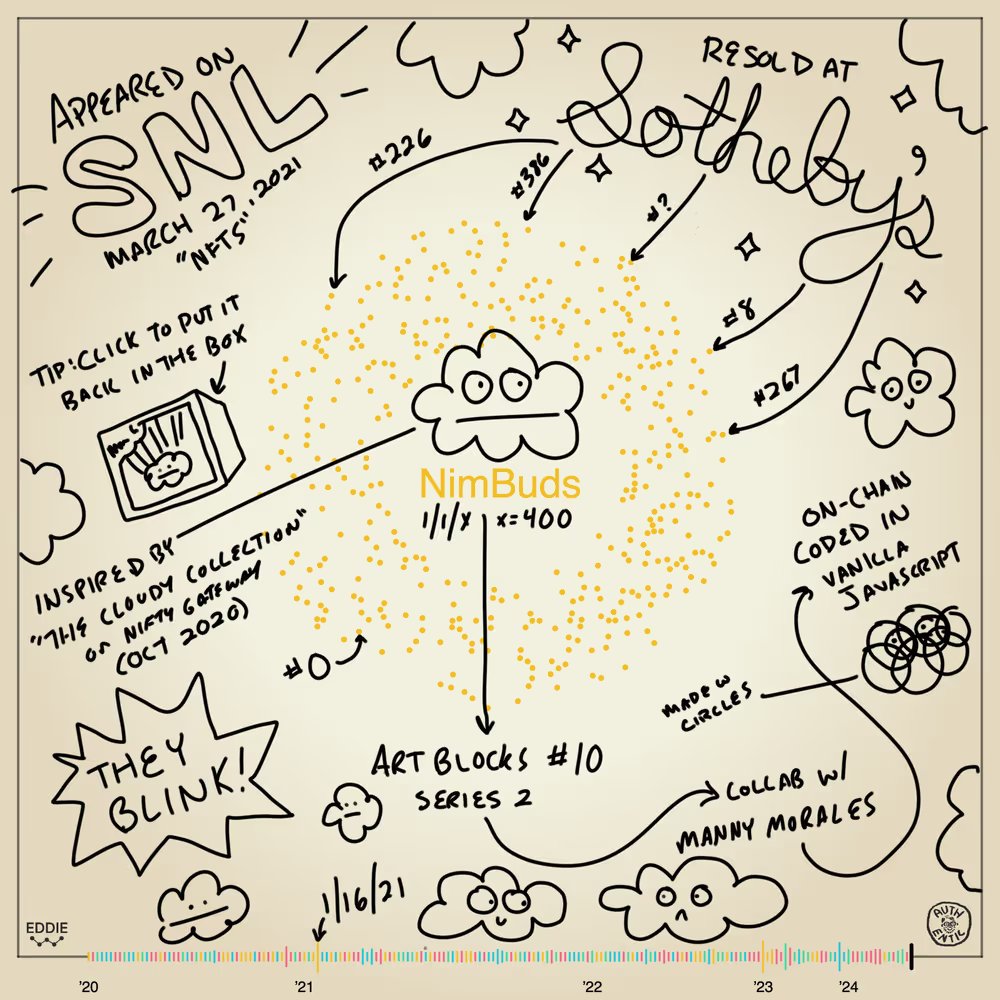 APPEARED ON
SNL
MARCH 27, 2021
"NFTS"
RESOLD AT
Sotheby's
#226
#386
#?
#8
#267
TIP: CLICK TO PUT IT
BACK IN THE BOX
NimBuds
1/1/X X=400
INSPIRED BY
"THE CLOUDY COLLECTION"
on NIFTY GATEWAY
(OCT 2020)
ON-CHAIN
CODED IN
VANILLA
JAVASCRIPT
#0
MADE W
CIRCLES
THEY
BLINK!
ART BLOCKS #10
SERIES 2
COLLAB W/
MANNY MORALES
1/16/21
EDDIE
AUTH
ENTIC
'20
'21
'22
'23
'24